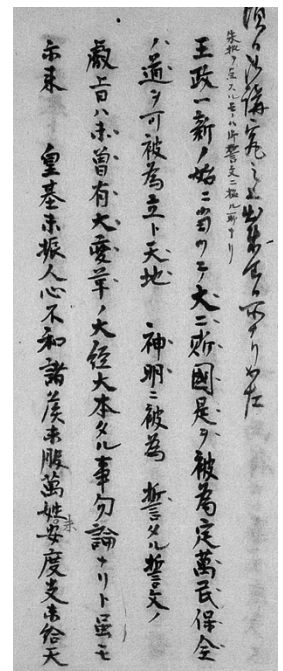 講究之上出来
朱批ノ点スルモノハ御誓文ニ極ル所ナリ
王政一新ノ始ニ当ツテ大ニ斯國是ヲ被為定萬民保全
ハ道ヲ可被為立ト天地 神明ニ被為 誓タル誓文ノ
叡旨ハ未曾有大変革ノ大経大本タル事勿論ナリト雖モ
尓来 皇基未振人心不和諸侯未服萬姓未安度支未給天